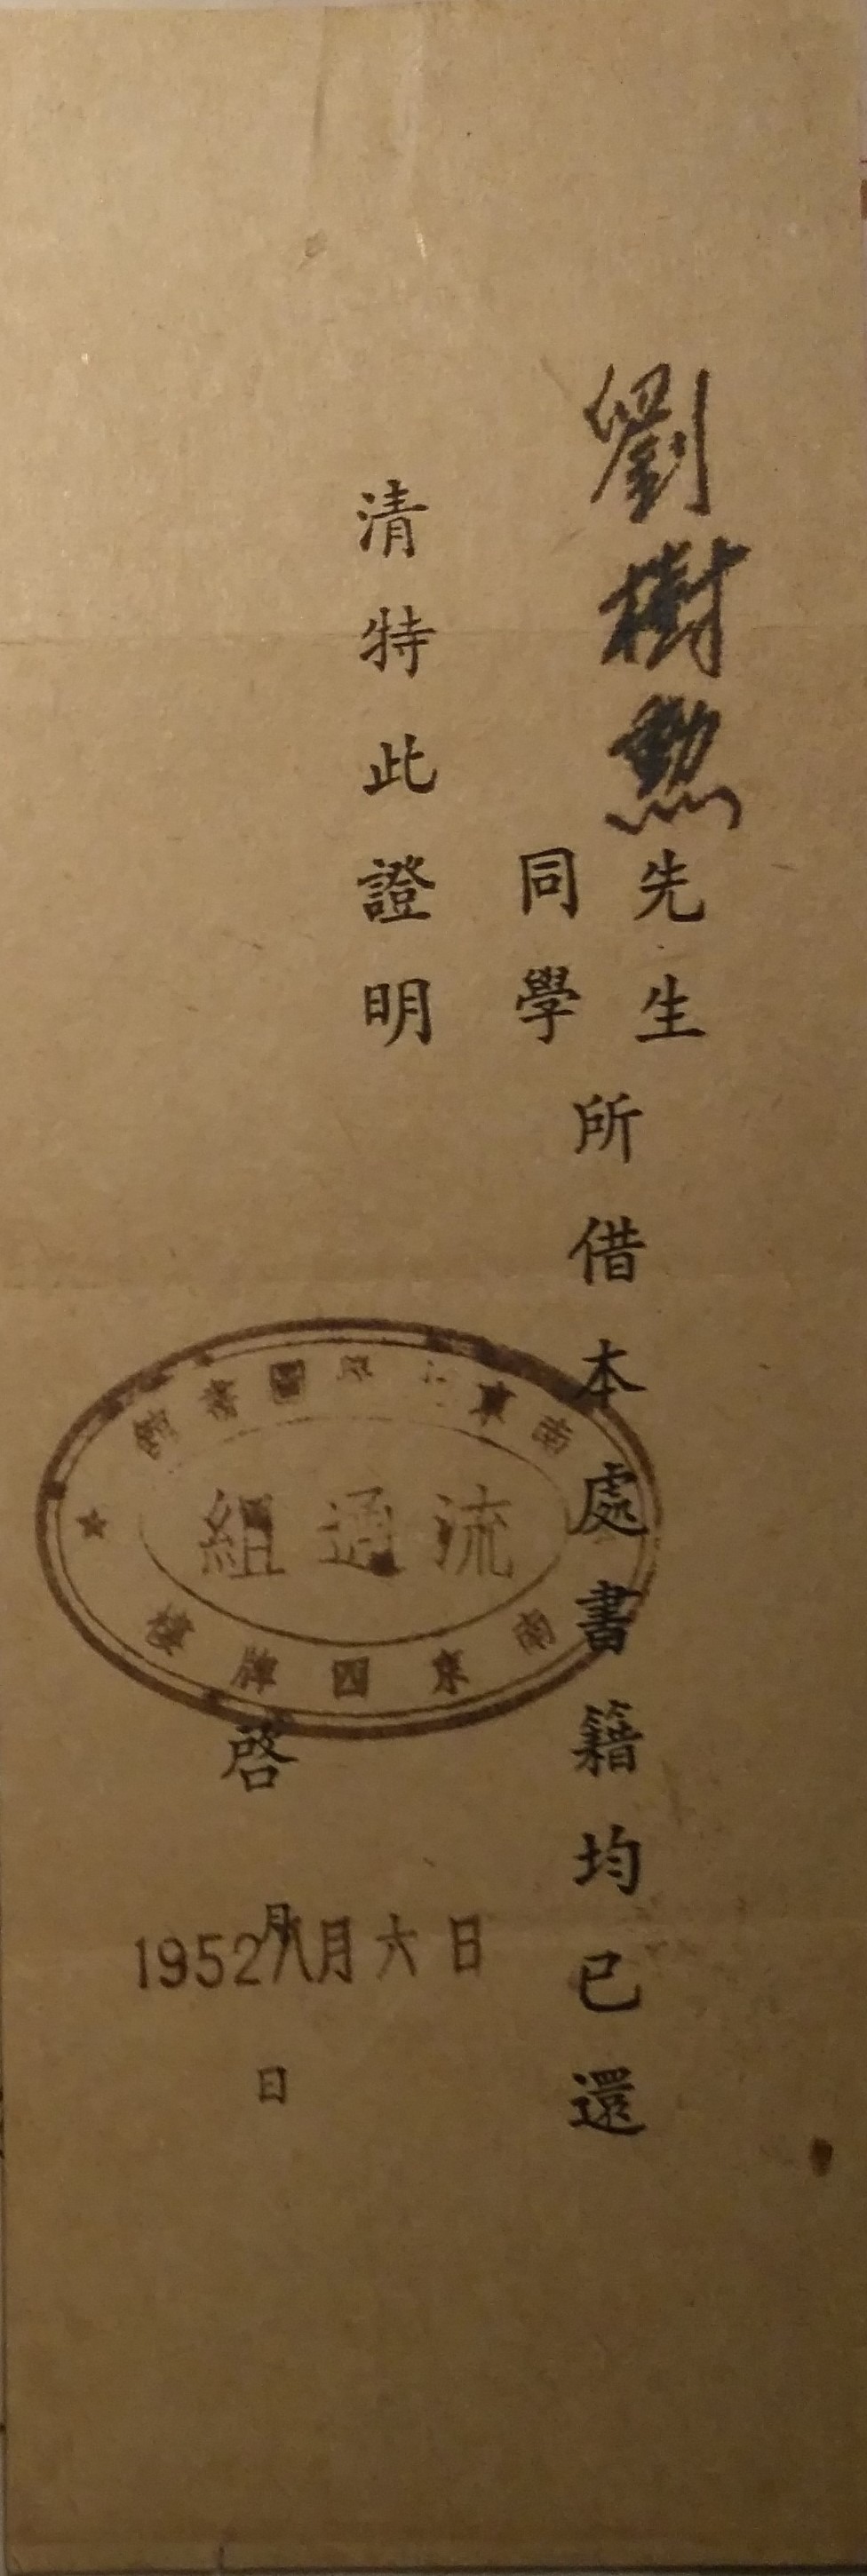 劉樹勲
先生
同學
所借本處書籍均已還
清特此證明
南京 圖書館
流通組
南京四牌樓
啓
月
日
1952八月六日